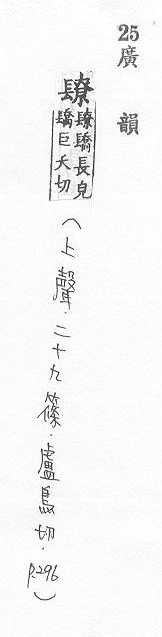 25 廣韻
镽
镽𨲭長皃
𨲭巨夭切
（上聲．二十九篠．盧鳥切．p.296）